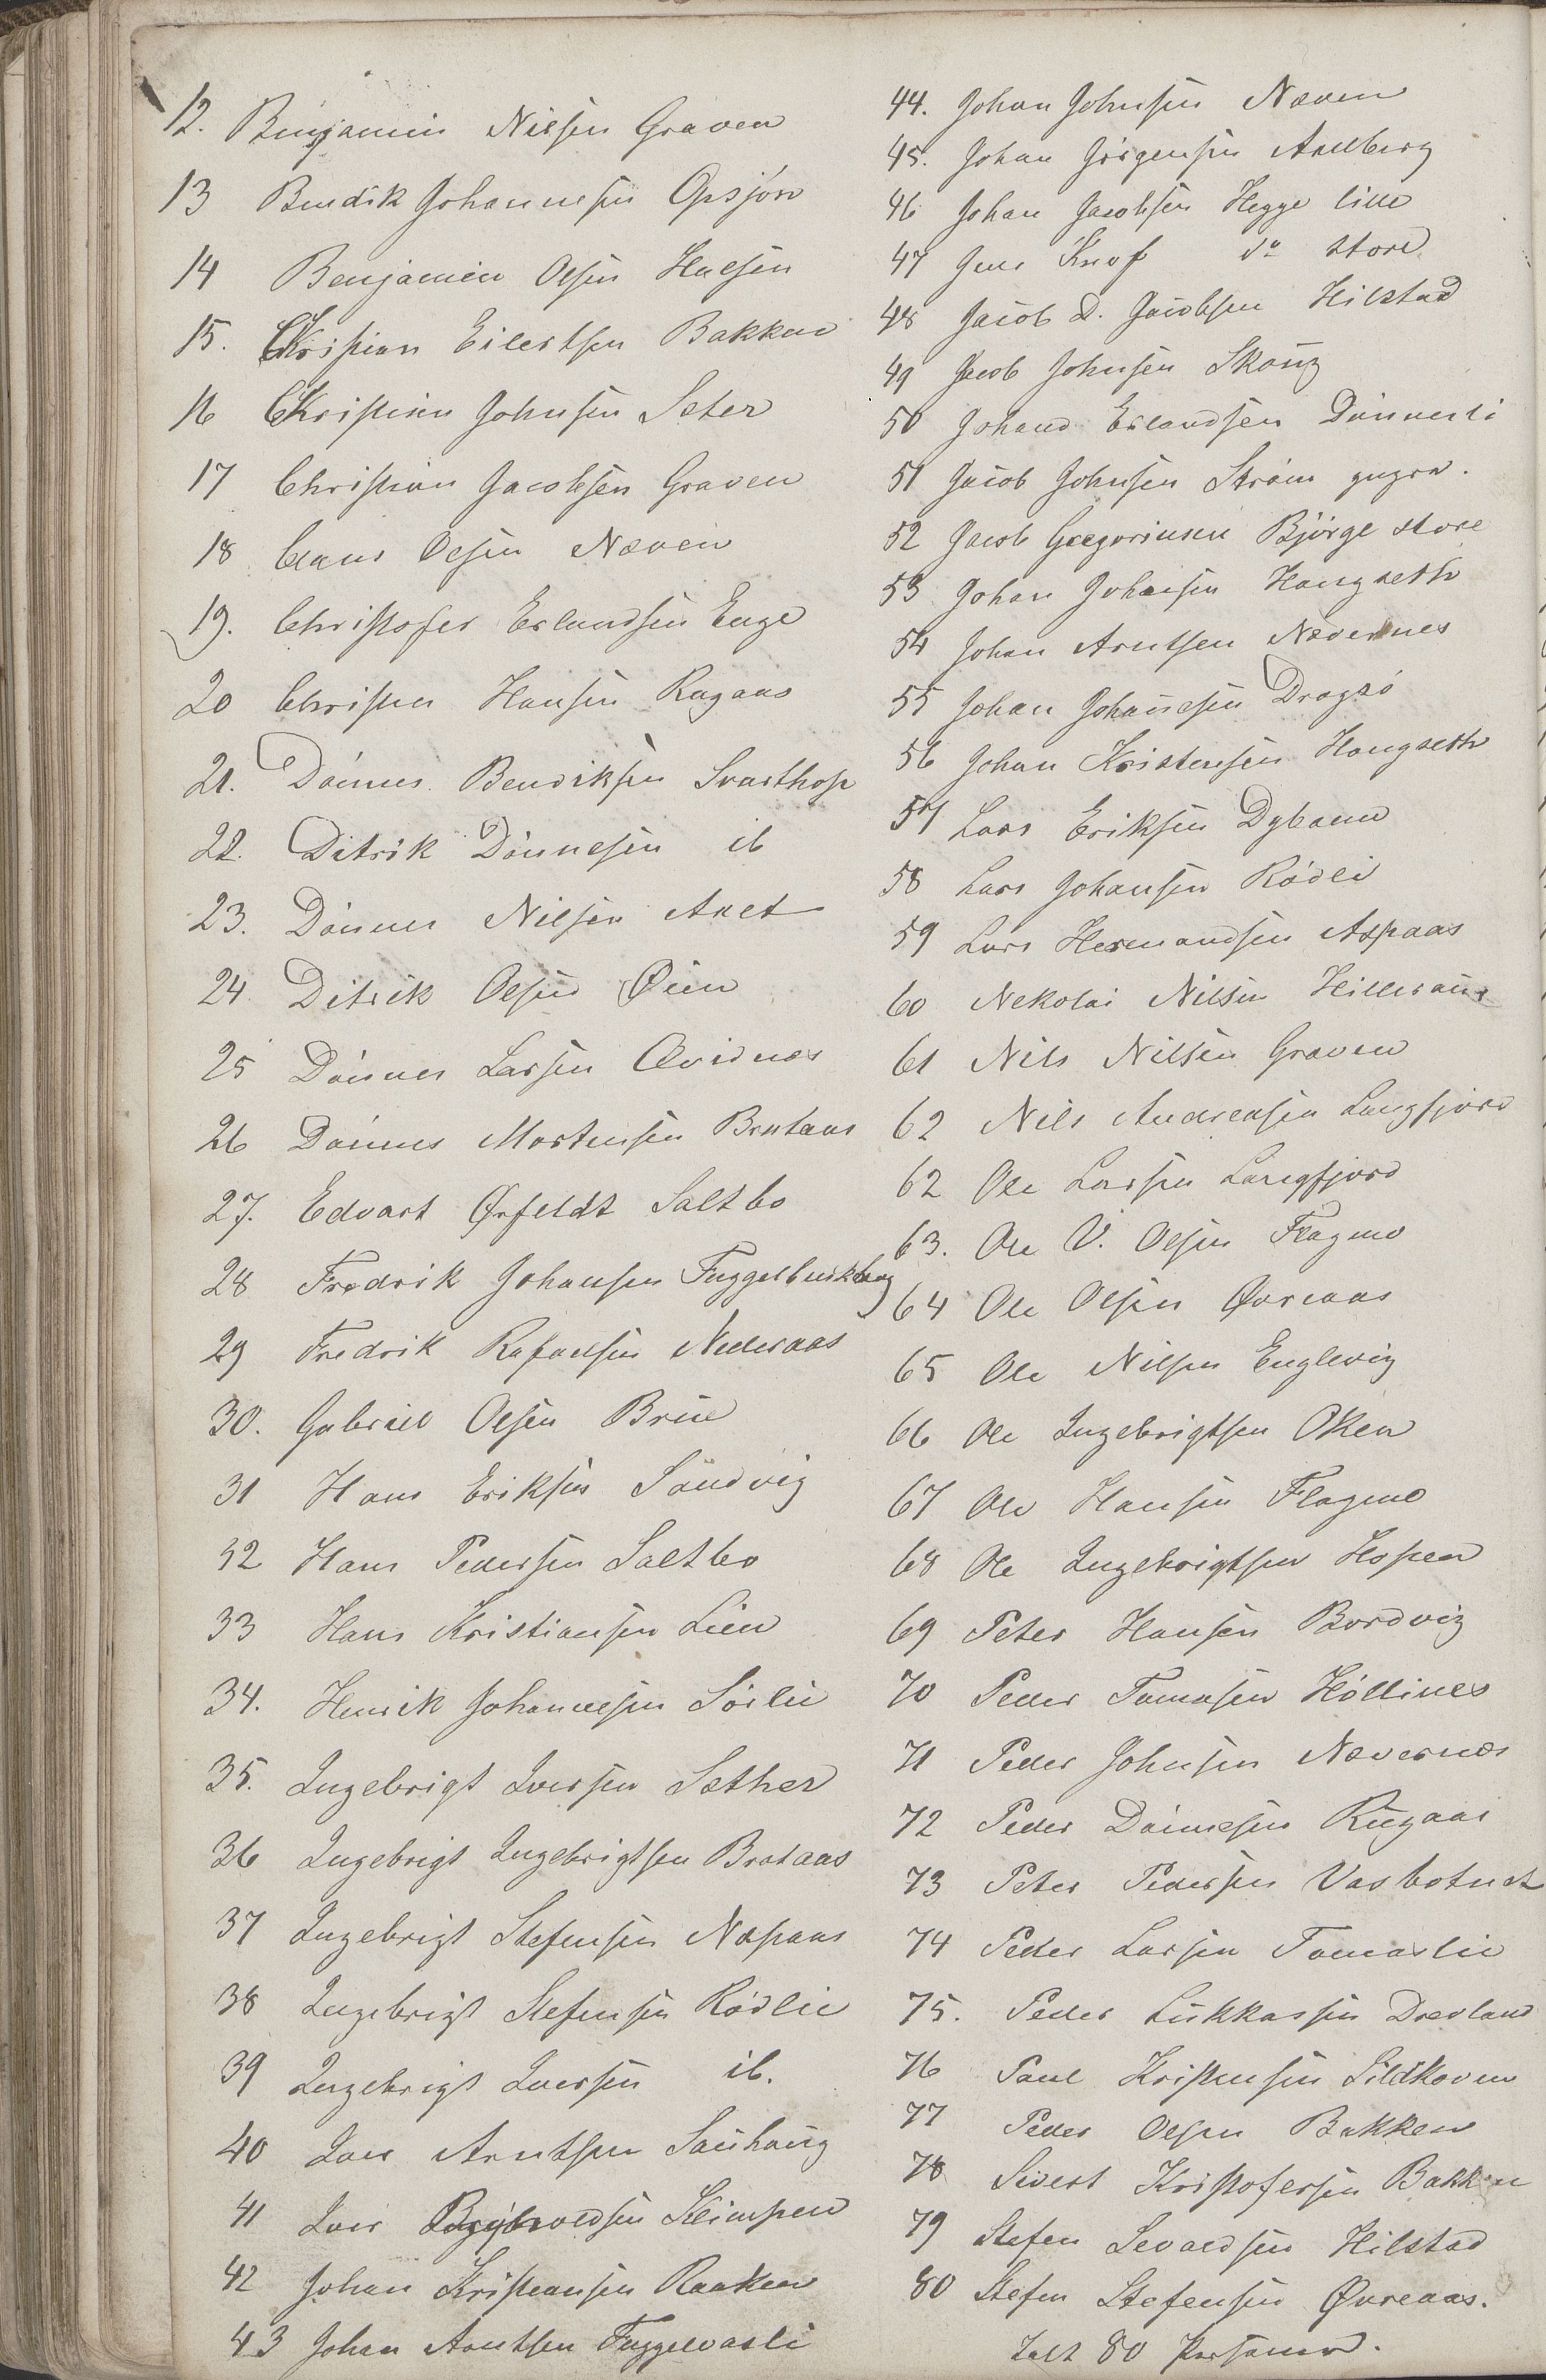 12. Benjamin Nilsen Graven
13 Bendik Johannesen Opsjøn
14 Benjamin Olsen Halsen
15. Kristian Eilertsen Bakken
16 Kristian Johnsen Seter
17 Christian Jacobsen Graven
18 Claus Olsen Næven
19. Christofer Erlandsen Enge
20 Christen Hansen Rugaas
21. Dönnes Bendiksen Svarthop
22. Ditrik Dönnesen ib
23. Dönnes Nilsen
24 Ditrik Olsen Øien
25 Dönnes Larsen Qvidnes
26 Dönnes Mortensen Brataas
27. Edvart Øsfeldt Saltbo
28 Fredrik Johansen
29 Fredrik Rafaelsen Nederaas
30. Gabriel Olsen Brun
31 Hans Eriksen Sandvig
32 Hans Pedersen Saltbo
33 Hans Kristiansen Lien
34. Henrik Johannesen Sörlie
35. Ingebrigt Iversen Sæther
36 Ingebrigt Ingebrigtsen Brataas
37 Ingebrigt Stefensen Næpaas
38 Ingebrigt Stefensen Rödlie
39 Ingebrigt Iversen ib.
40 Iver Arntsen Sauhaug
41 Iver Klimpen
42 Johan Kristiansen Raaken
43 Johan Arntsen Fuggelvasli
44. Johan Johnsen Næven
45. Johan Jörgensen Aalberg
46 Johan Jacobsen Hegge lille
47 Jens Knof do store
48 Jacob D. Jacobsen Hilstad
49 Jacob Johnsen Skaug
50 Johan Erlandsen Dönnesli
51 Jacob Johnsen Ström
52 Jacob Gregoriusen Bjørge store
53 Johan Johansen Haugseth
54 Johan Arntsen Nævernes
55 Johan Johannesen Dragsö
56 Johan Kristensen Haugseth
57 Lars Eriksen Dybavn
58 Lars Johansen Rödli
59 Lars Hermandsen Aspaas
60 Nekolai Nilsen
61 Nils Nilsen Graven
62 Nils Andreasen Langfjord
62 Ole Larsen Langfjord
63. Ole V. Olsen Flagmo
64 Ole Olsen Øvreaas
65 Ole Nilsen Englevig
66 Ole Ingebrigtsen Oken
67 Ole Hansen Flagmo
68 Ole Ingebrigtsen Hopen
69 Peter Hansen Bordvig
70 Peder Tomasen Höllines
71 Peder Johnsen Nævernes
72 Peder Dönnesen Rugaas
73 Peter Pedersen Vasbotnet
74 Peder Larsen Tomaslie
75. Peder Lukkassen Drevland
76 Paul Kristensen Sildhoven
77 Peder Olsen Bakken
78 Sivert Kristofersen Bakken
79 Stefen Sevaldsen Hilstad
80 Stefen Stefensen Øvreaas.
Talt 80 Personer.